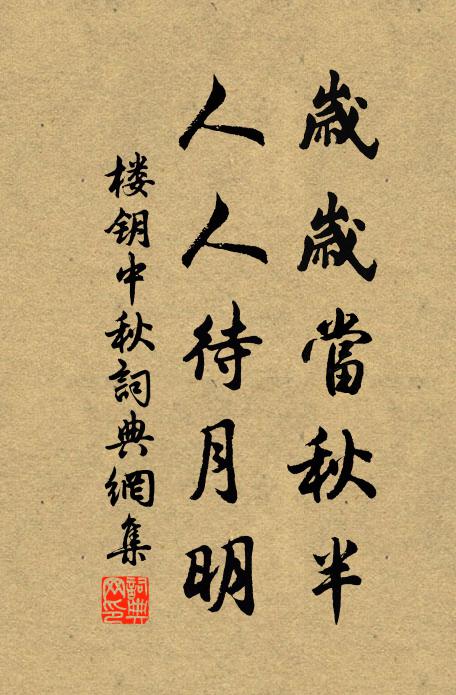 歲歲當秋半
人人待月明
楼钥中秋詞典網集
詞典网印